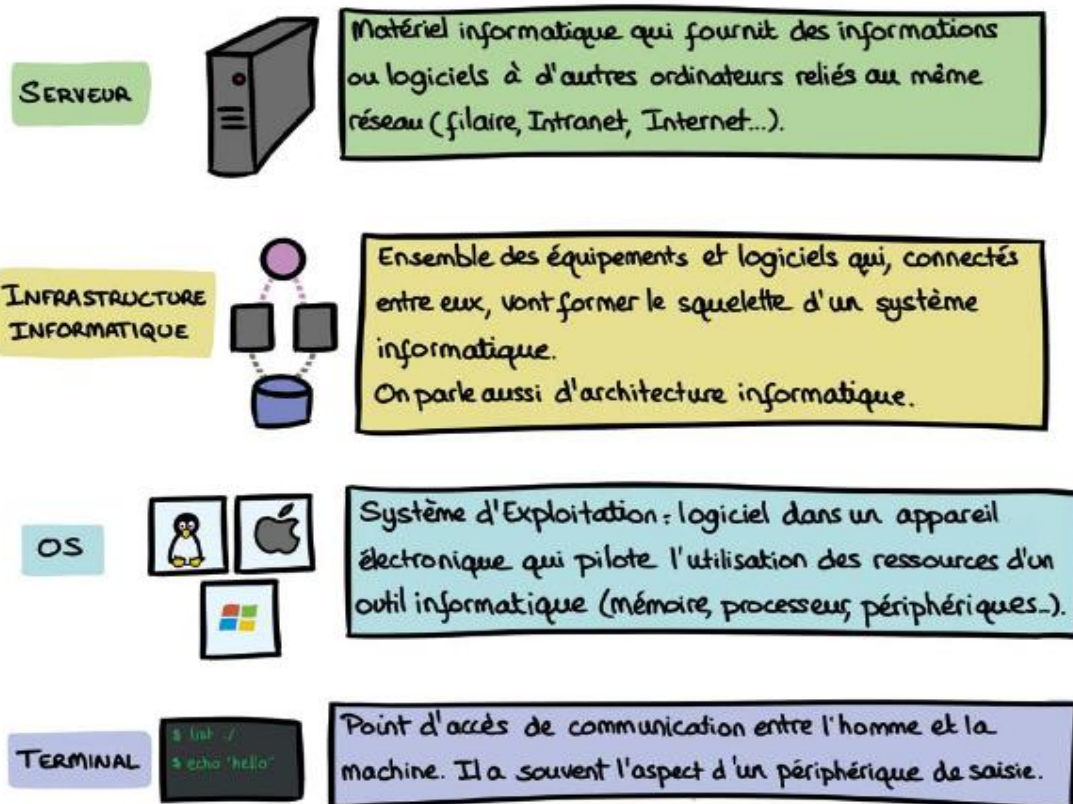 SERVEUR
Matériel informatique qui fournit des informations
ou logiciels à d'autres ordinateurs reliés au même
réseau (filaire, Intranet, Internet...).
INFRASTRUCTURE
INFORMATIQUE
Ensemble des équipements et logiciels qui, connectés
entre eux, vont former le squelette d'un système
informatique.
On parle aussi d'architecture informatique.
OS
Système d'Exploitation : logiciel dans un appareil
électronique qui pilote l'utilisation des ressources d'un
outil informatique (mémoire, processeur, périphériques...).
TERMINAL
$ list ./
$ echo "hello"
Point d'accès de communication entre l'homme et la
machine. Il a souvent l'aspect d'un périphérique de saisie.